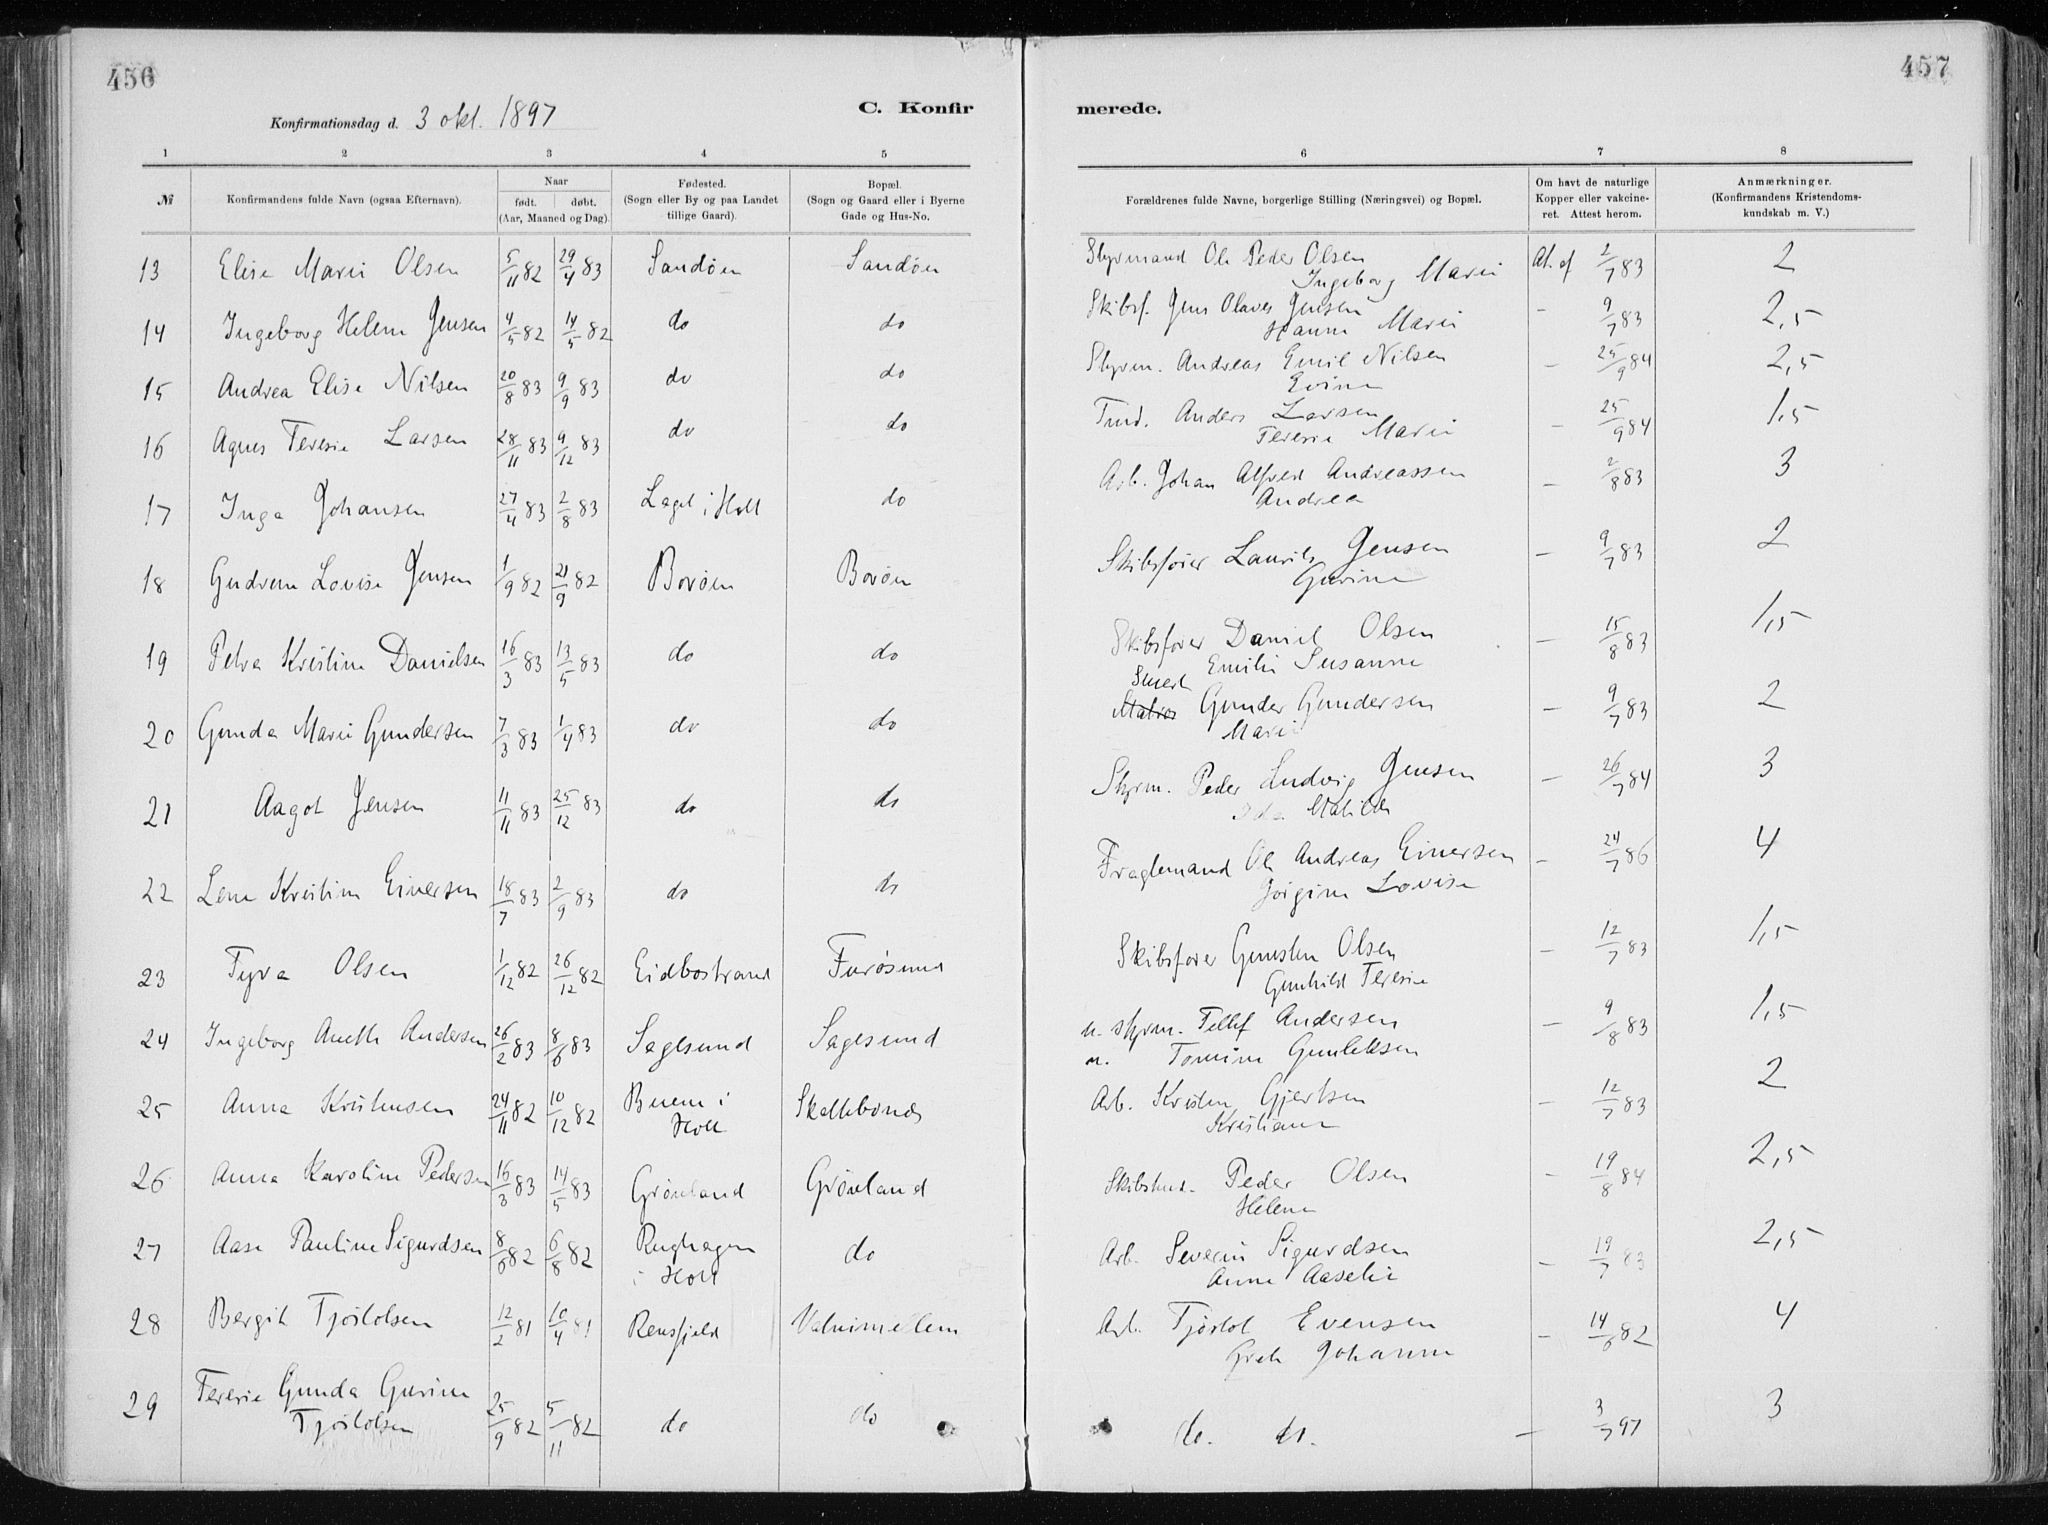 456
457
C. Konfir
merede.
Konfirmationsdag d. 3 okt. 1897
1 2 3 4 5 6 7 8
№ Konfirmandens fulde Navn (ogsaa Efternavn). Naar født. døbt. (Aar, Maaned og Dag). Fødested. (Sogn eller By og paa Landet tillige Gaard). Bopæl. (Sogn og Gaard eller i Byerne Gade og Hus-No. Forældrenes fulde Navne, borgerlige Stilling (Næringsvei) og Bopæl. Om havt de naturlige Kopper eller vakcineret. Attest herom. Anmærkninger. (Konfirmandens Kristendomskundskab m. V.)
13 Elise Marie Olsen 5/11 82 29/4 83 Sandøen Sandøen Styrmand Ole Peder Olsen At. af 2/7 83 2
Ingeborg Marie
14 Ingeborg Helene Jensen 4/5 82 14/5 82 do do Skibsf. Jens Olaves Jensen - 9/7 83 2,5
Hanne Marie
15 Andrea Elise Nilsen 20/8 83 9/9 83 do do Styrm. Andreas Emil Nilsen - 25/9 84 2,5
Evine
16 Agnes Teresie Larsen 28/11 83 9/12 83 do do Anders Larsen - 25/9 84 1,5
Teresie Marie
17 Inga Johansen 27/4 83 2/8 83 Laget i Holt do Arb. Johan Alfred Andreassen - 2/8 83 3
Andrea
18 Gudrun Lovise Jensen 1/9 82 21/9 82 Borøen Borøen Skibsfører Laurits Jensen - 9/7 83 2
Gurine
19 Petra Kristine Danielsen 16/3 83 13/5 83 do do Skibsfører Daniel Olsen - 15/8 83 1,5
Emilie Susanne
20 Gunda Marie Gundersen 7/3 83 1/4 83 do do Matros Gunder Gundersen - 9/7 83 2
Marie
21 Aagot Jensen 11/11 83 25/12 83 do do Styrm. Peder Ludvig Jensen - 26/7 84 3
Ida Matilde
22 Lene Kristine Einersen 18/7 83 2/9 83 do do Fragtemand Ole Andreas Einersen - 24/7 86 4
Jørgine Lovise
23 Tyra Olsen 1/12 82 26/12 82 Eidbostrand Furøsund Skibsfører Gunsten Olsen - 12/7 83 1,5
Gunhild Teresie
24 Ingeborg Anette Andersen 26/2 83 8/6 83 Sagesund Sagesund u. styrm. Tellef Andersen - 9/8 83 1,5
u. Tomine Gunleksen
25 Anna Kristensen 24/11 82 10/12 82 Buene i Holt Arb. Kristen Gjertsen - 12/7 83 2
Kristiane
26 Anna Karoline Pedersen 16/3 83 14/5 83 Grønland Grønland Peder Olsen - 19/8 84 2,5
Helene
27 Aase Pauline Sigurdsen 8/6 82 6/8 82 Rughagen i Holt do Arb. Severin Sigurdsen - 19/7 83 2,5
Anne Aaselie
28 Bergit Tjøstolsen 12/2 81 10/4 81 Rensfjeld Arb. Tjøstol Evensen - 14/6 82 4
Grete Johanne
29 Teresie Gunda Gurine Tjøstolsen 25/9 82 5/11 82 do do do. do. - 3/7 97 3